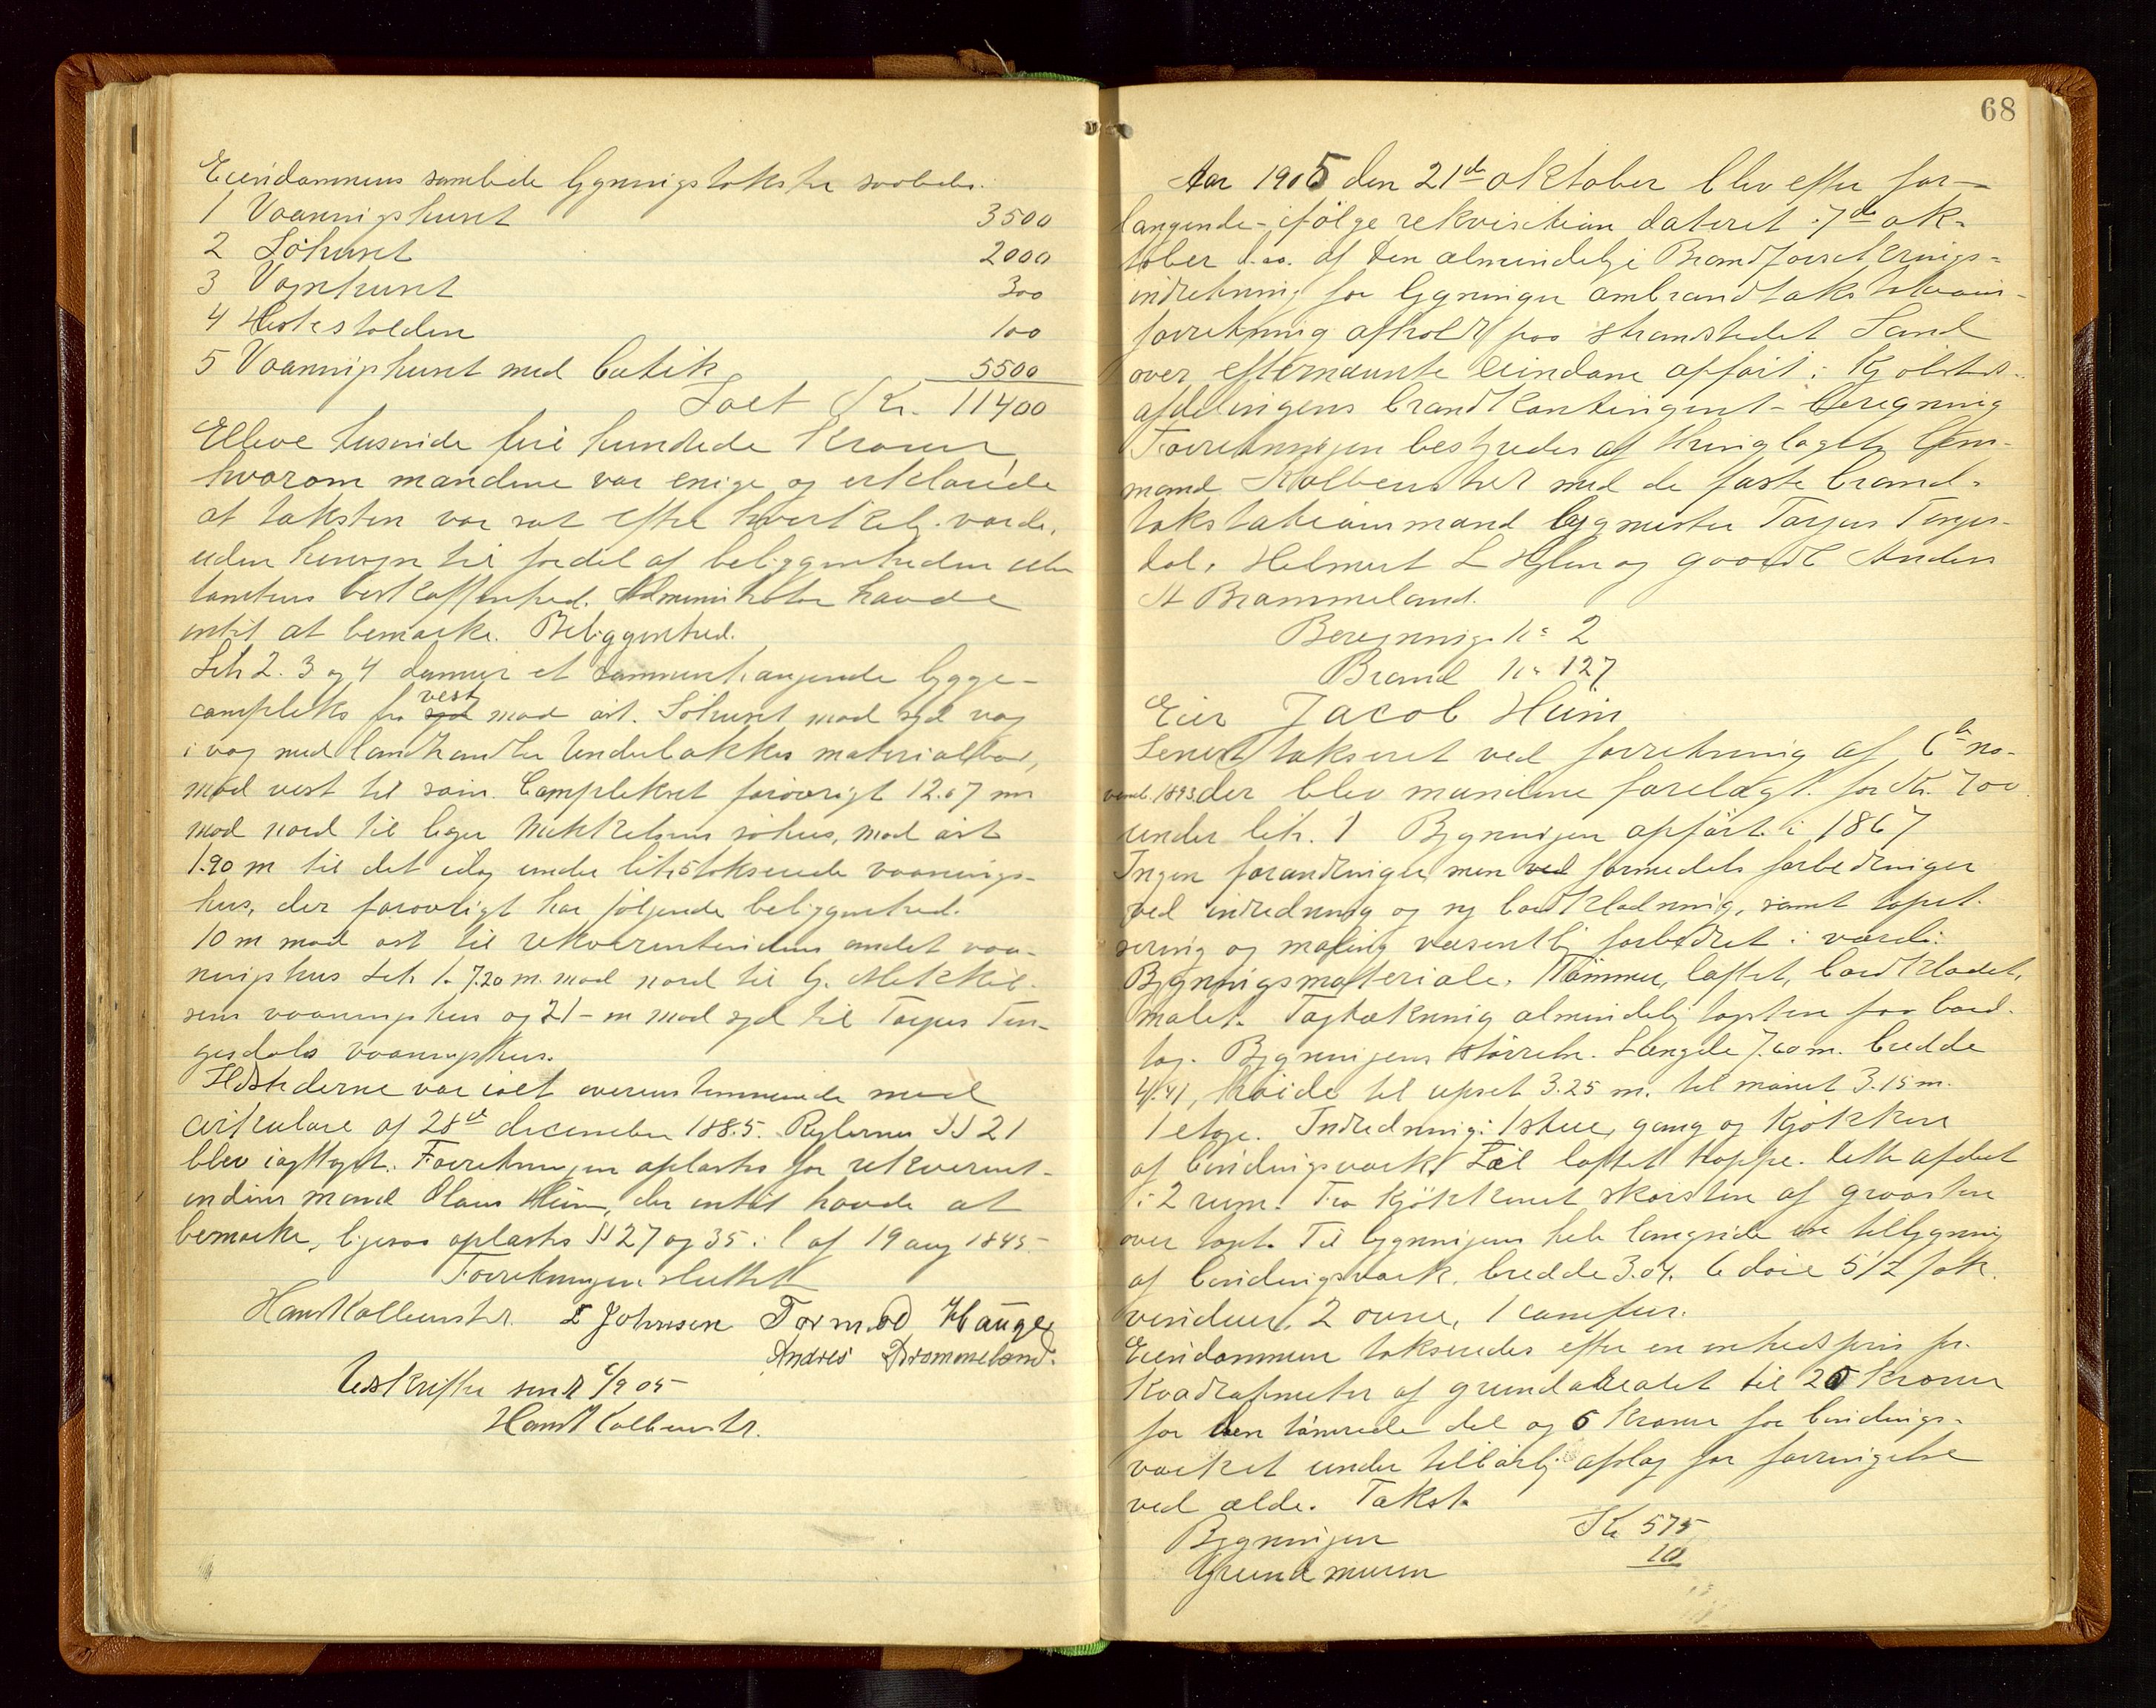 Eiendommens samlede bygningstakster saaledes.
1 Vaaningshuset 3500
2 Söhuset 2000
3 Vognhuset 300
4 Hestestalden 100
5 Vaaningshuset med butik 5500
Ialt Kr. 11400
Elleve tusende fire hundrede Kroner,
hvorom mændene var enige og erklærede
at taksten var sat efter hvert kel. værdi,
uden hensyn til fordel af beliggenheden eller
tomtens beskaffenhed. Administrator havde
intet at bemærke. Beliggenhed.
Litr 2. 3 og 4 danner et sammenhængende bygge-
compleks fra syd vest mod öst. Söhuset mod syd væg
i væg med landhandler Underbakkes materialbod,
mod vest til söin. Complekset forövrigt 12.07 m
mod nord til læge Mikkelsens söhus, mod öst
1.90 m til det idag under litr 5 takserede vaanings-
hus, der forövrigt har fölgende beliggenhed.
10 m mod öst til rekvirentindens andet vaa-
ningshus Litr 1. 7.20 m. mod nord til G. Mikkel-
sens vaaningshus og 21 - m mod syd til Torjus Ten-
gesdals vaaningshus.
Ildstederne var ialt overenstemmende med
cirkulære af 28de december 1885. Reglerne §§ 21
blev iagttaget. Forretningen oplæstes for rekvirent-
indens mand Olaus Heim, der intet havde at
bemærke, ligesaa oplæstes §§ 27 og 35 i l af 19 aug 1845.
Forretningen sluttet
Hans Kolbenstv. L Johnsen Tormod Hauge
Andres Drommeland.
Udskrifter sendt 6/9 05
Hans Kolbenstv.
68
Aar 1905 den 21de oktober blev efter for-
langende - ifölge rekvisition dateret 7de ok-
tober d.aa. af Den almindelige Brandforsikrings-
indretning for bygninger ombrandtakstations-
forretning afholdt paa strandstedet Sand
over efternævnte eiendom opfört i Kjöbsteds-
afdelingens brandkontingent - beregning
Forretningen bestyredes af thinglagets lens-
mand Kolbenstvedt med de faste brand-
takstationsmænd bygmester Torjus Tenges-
dal, Helmert L Hylen og gaardbr Anders
A Brommeland.
Beregnings no 2
Brand no 127
Eier Jacob Heim
Senest takseret ved forretning af 6te no-
vemb. 1893 der blev mændene forelagt. for Kr. 700
under litr. 1 Bygningen opfört i 1867
Ingen forandringer men ved formedels forbedringer
ved indredning og ny bordklædning, samt tapet-
sering og maling væsentlig forbedret i værdi.
Bygningsmateriale. Tömmer, loftet, bordklædet,
malet. Tagtækning almindelig tagsten paa bord-
tag. Bygningens störrelse. Længde 7.60 m. bredde
4.41, höide til upset 3.25 m. til mönet 3.15 m.
1 etage. Indredning: 1 stue, gang og kjökken
af bindingsværk. Til loftet trappe. Dette afdelt
i 2 rum. Fra kjökkenet skorsten af graasten
over taget. Til bygningens hele langside en tilbygning
af bindingsværk. bredde 3.04. 6 döre 5 1/2 fak.
vinduer. 2 ovne, 1 comfur.
Eiendommen takseredes efter en enhedspris pr.
kvadratmeter af grundarealet til 20 kroner
for den tömrede del og 6 kroner for bindings-
værket under tilbörlig afslag for forringelse
ved ælde. Takst.
Bygningen Kr 575
Grundmuren 10